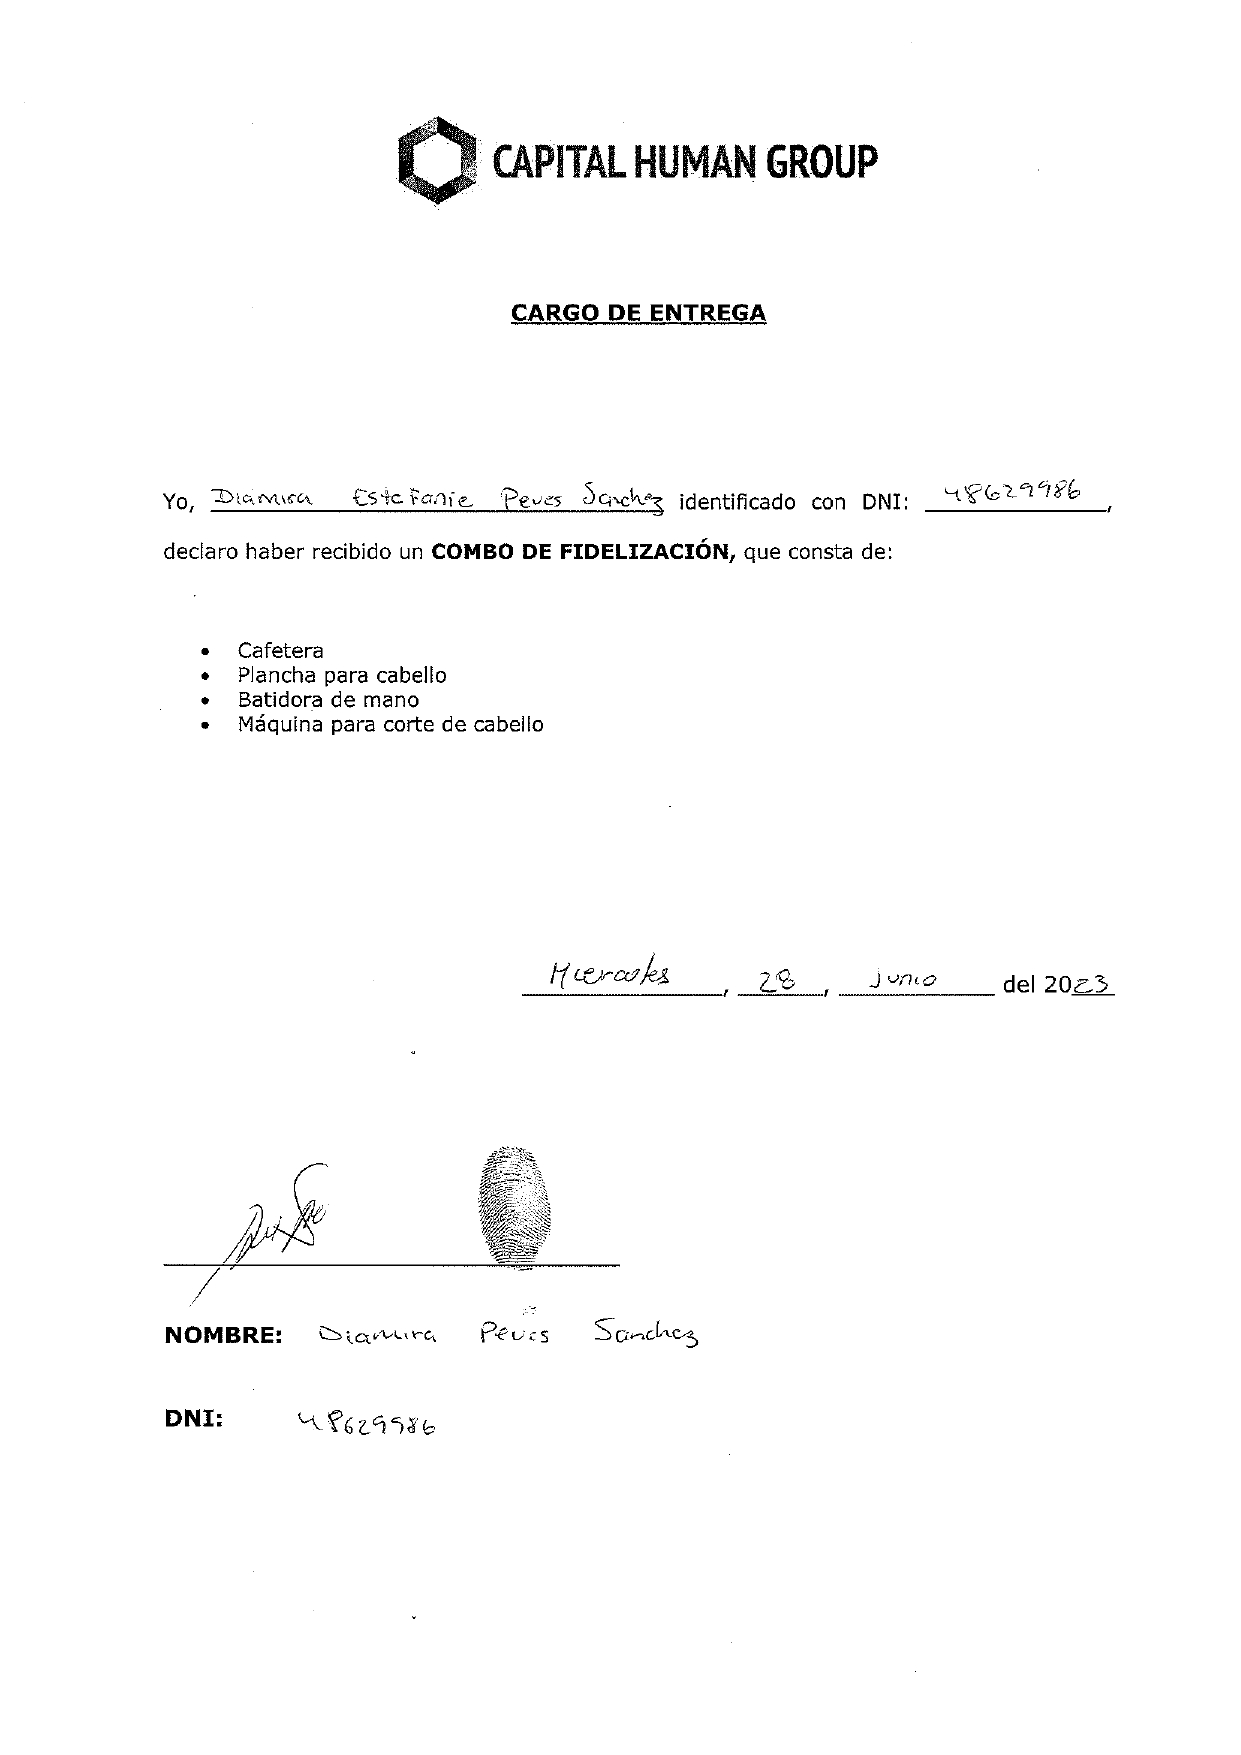 CAPITAL HUMAN GROUP
CARGO DE ENTREGA
Yo, Diamira Estefanie Peves Sanchez identificado con DNI: 48629986,
declaro haber recibido un COMBO DE FIDELIZACIÓN, que consta de:
• Cafetera
• Plancha para cabello
• Batidora de mano
• Máquina para corte de cabello
Miercoles, 28, Junio del 2023
NOMBRE: Diamira Peves Sanchez
DNI: 48629986